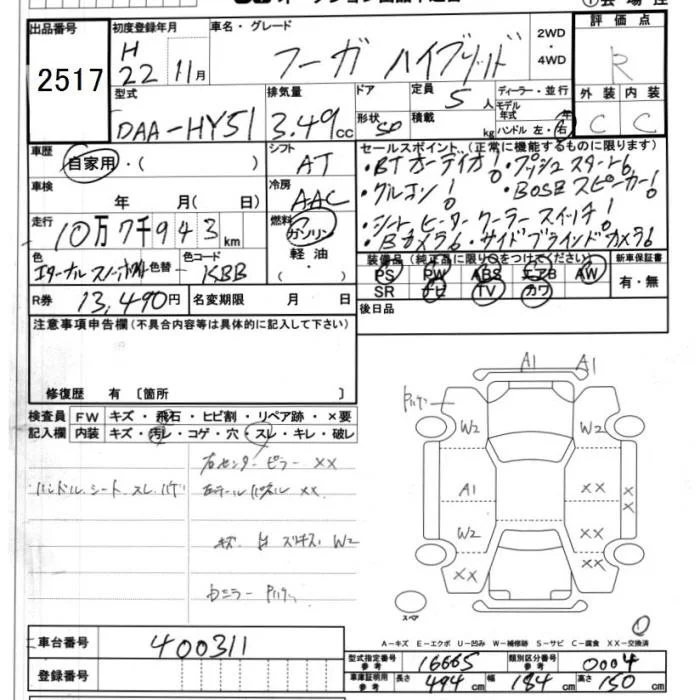 出品番号 初度登録年月 車名・グレード 2WD ・ 4WD 評価点
2517 H 22 11月 フーガ ハイブリッド R
型式 排気量 ドア 定員 5人 ディーラー・並行 外装 内装
DAA-HY51 3.49cc 形状 SD 積載 kg モデル年式 年 ハンドル 左・右 C C
車歴 自家用・( ) シフト AT セールスポイント(正常に機能するものに限ります)
車検 年 月( 日) 冷房 AAC
・BTオーディオ! ・プッシュスタート
・クルコン! ・BOSEスピーカー!
・シートヒーター クーラー スイッチ!
・Bカメラ ・サイドブラインドカメラ
走行 10万7千943km 燃料 ガソリン 軽油
装備品(純正品に限り○をつけてください) 新車保証書
色 色替 色カラーコード KBB
PS PW ABS エアB AW 有・無
SR ナビ TV カワ
R券 13,490円 名変期限 月 日 後日品
注意事項申告欄(不具合内容等は具体的に記入して下さい)
修復歴 有 〔箇所 〕
検査員 FW キズ・飛石・ヒビ割・リペア跡・×要
記入欄 内装 キズ・汚レ・コゲ・穴・スレ・キレ・破レ
右センターピラー ××
ハンドル、シート、スレ、ハゲ
A1 A1
W2 W2
A1 ×× ××
W2 ××
×× ××
スペア
A-キズ E-エクボ U-凹み W-補修跡 S-サビ C-腐食 XX-交換済
車台番号 400311
型式指定番号 参考 16665 類別区分番号 参考 0004
登録番号
車庫証明用 参考 長さ 494cm 幅 184cm 高さ 150cm